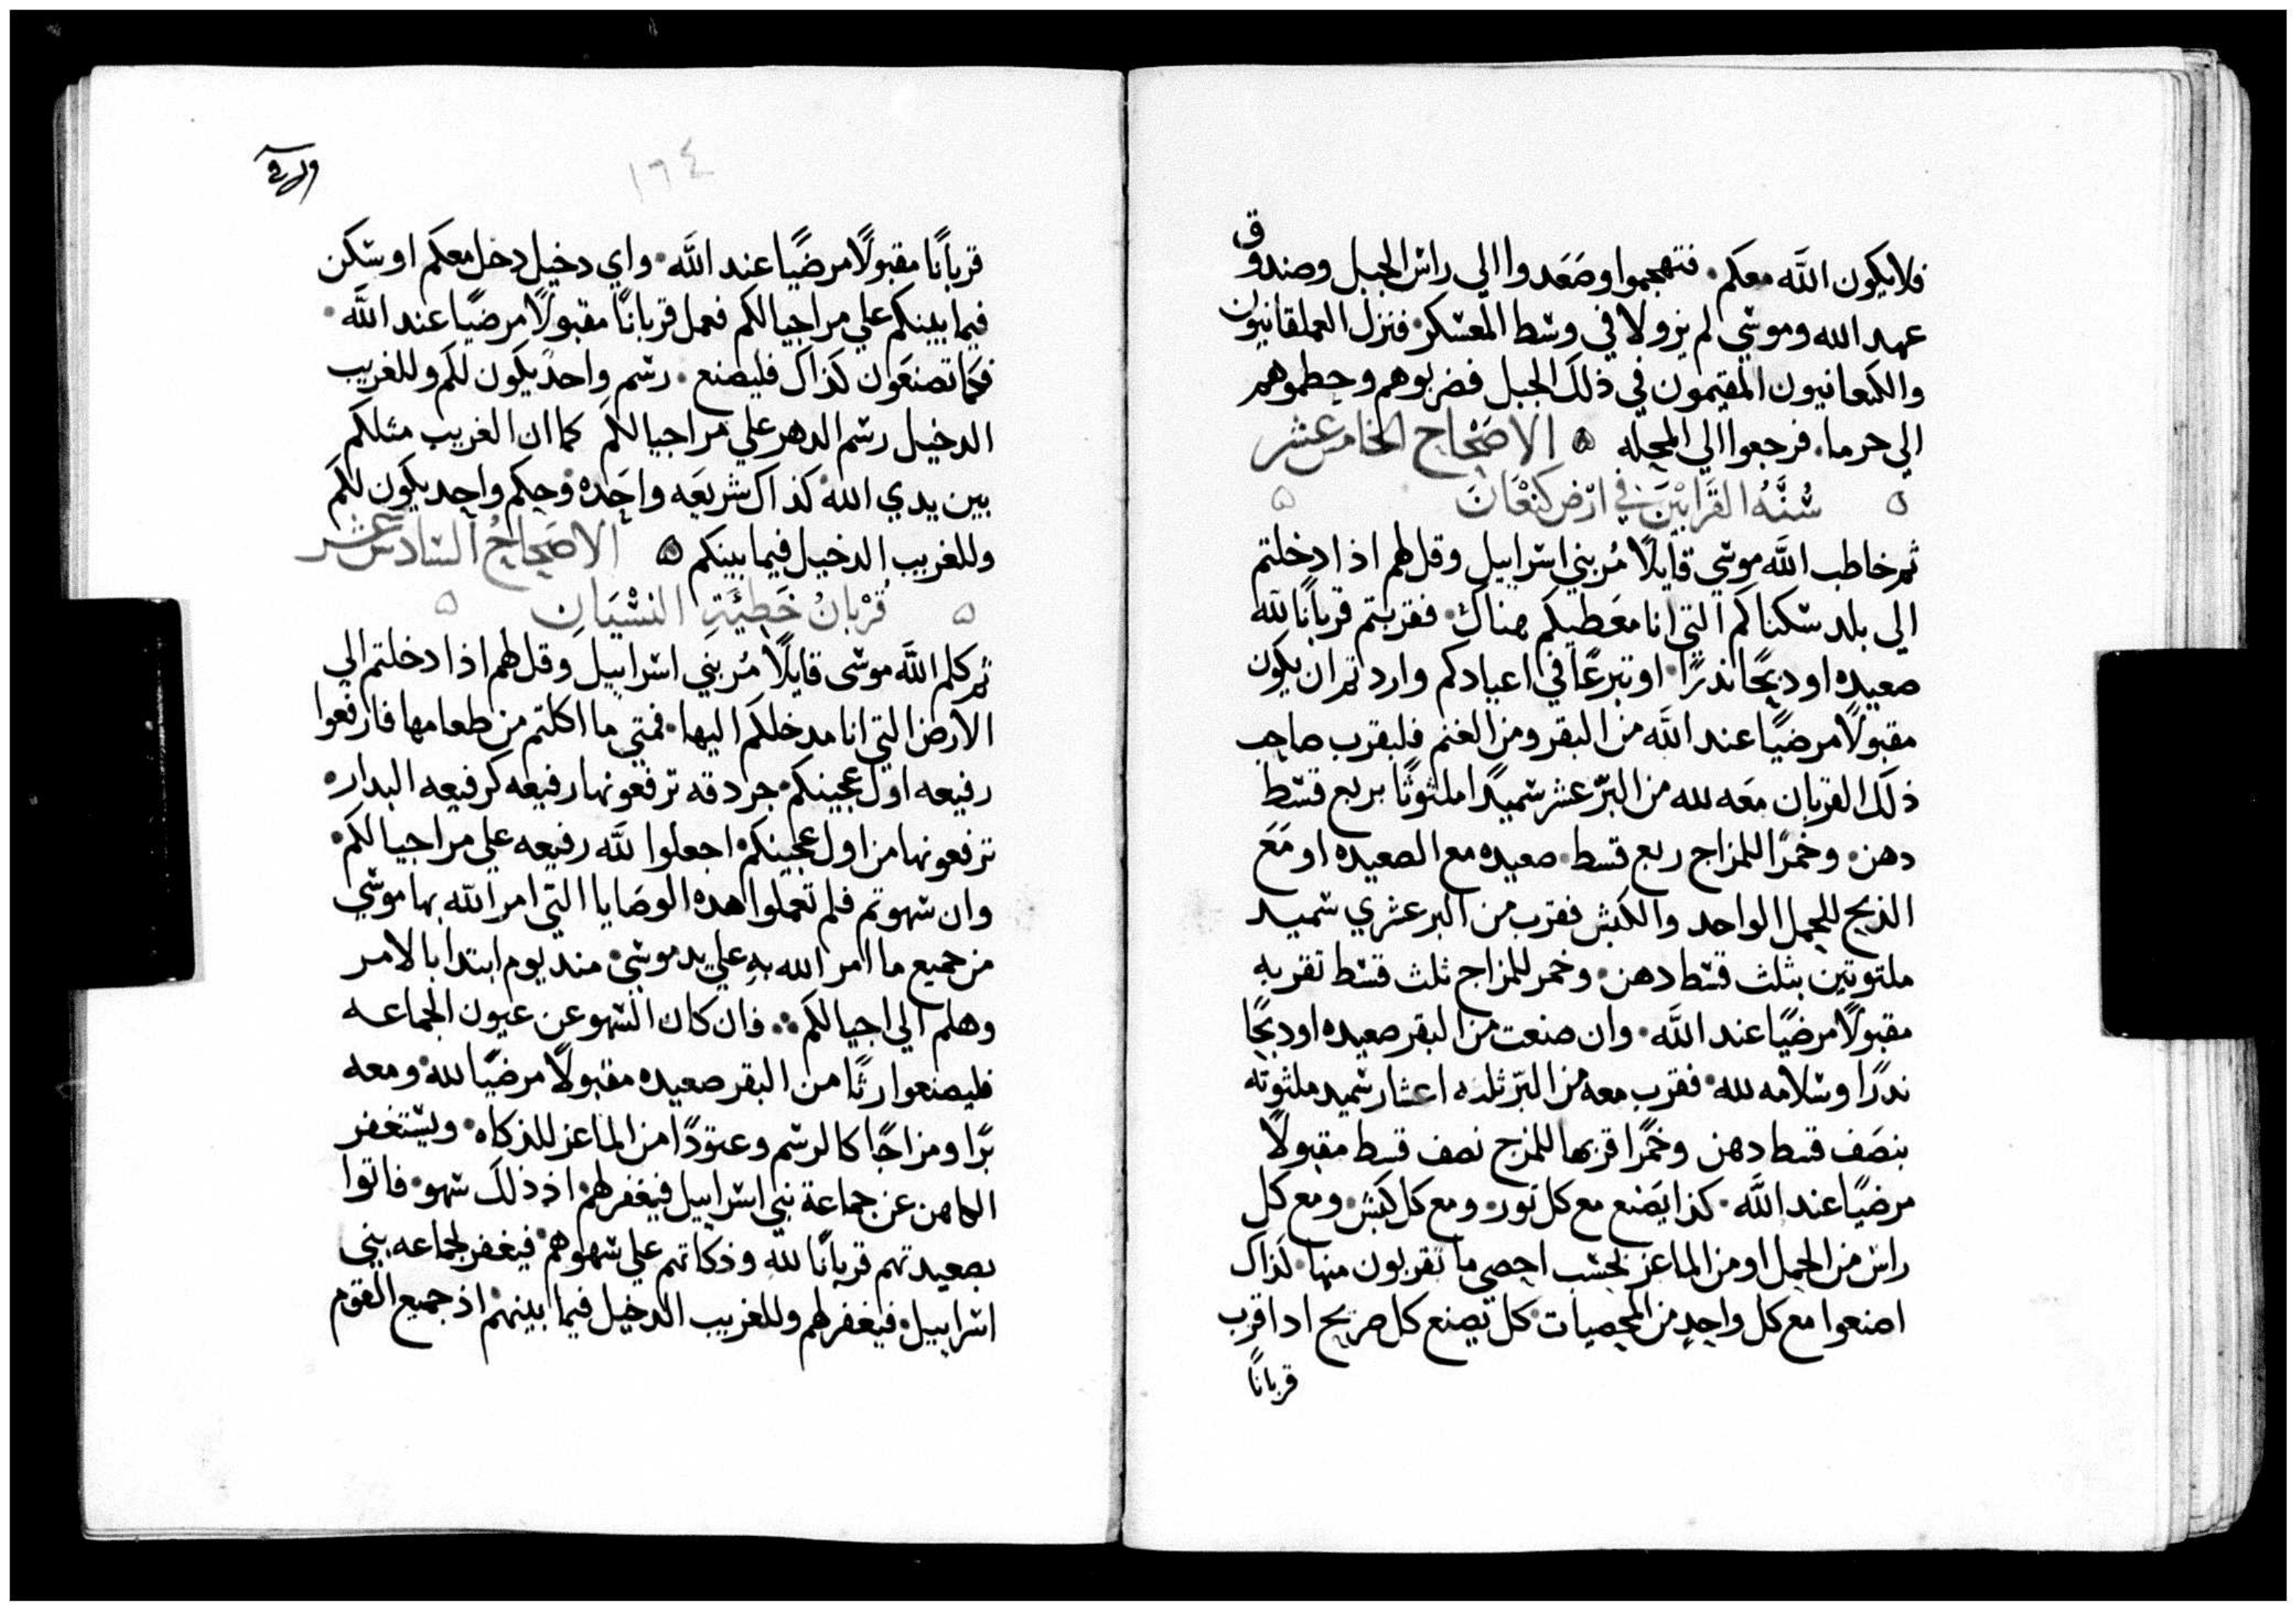 فلا يكون الله معكم. فتهجموا وصعدوا الي راس الجبل وصندوق
عهد الله وموسي لم يزولا في وسط المعسكر. فنزل العملقانيون
والكنعانيون المقيمون في ذلك الجبل فضربوهم وحطموهم
الي حرما. فرجعوا الي المحله ه الاصحاح الخامس عشر
ه سُنَّهُ القَرَابِيْنَ في ارْض كنْعَان ه
ثم خاطب الله موسي قايلًا مُر بني اسراييل وقل لهم اذا دخلتم
الي بلد سكناكم التي انا معطيكم هناك. فقربتم قربانًا لله
صعيده او دبحًا ندرًا. او تبرعًا في اعيادكم واردتم ان يكون
مقبولًا مرضيًا عند الله من البقر ومن الغنم فليقرب صاحب
ذلك القربان معه لله من البرّ عشر سميدًا ملثوثًا بربع قسط
دهن. وخمرًا للمزاج ربع قسط. صعيده مع الصعيده او مَعَ
الذبح للحمل الواحد والكبش فقرب من البر عشري سميد
ملتوتين بثلث قسط دهن. وخمر للمزاج ثلث قسط تقربه
مقبولًا مرضيًا عند الله. وان صنعت من البقر صعيده او دبحًا
ندرًا وسلامه لله. فقرب معه من البرّ ثلثه اعشار سميد ملثوثه
بنصَف قسط دهن وخمرًا قربها للمزج نصف قسط مقبولًا
مرضيًا عند الله. كذا يَصْنع مع كل ثور. ومع كل كبش. ومع كل
راس من الحمل او من الماعز بحسب احصي ما تقربون منها. كذاك
اصنعوا مع كل واحدٍ من المحصيات. كل يصنع كل صريح ادا قرب
قربانًا
١٦٤
قربانًا مقبولًا مرضيًا عند الله. واي دخيل دخل معكم او سكن
فيما بينكم علي مر اجيالكم فعمل قربانًا مقبولًا مرضيًا عند الله.
فكما تصنعَون كذاك فليصنع. رسم واحد يكون لكم وللغريب
الدخيل رسم الدهر علي مر اجيالكم كما ان الغريب مثلكم
بين يدي الله. كذاك شريعَه واحَده وحكم واحد يكون لكم
وللغريب الدخيل فيما بينكم ه الاصحاحُ السادس عشر
ه قُرْبانُ خَطِيَّة النسْيَانِ ه
ثم كلم الله موسى قايلًا مُر بنَي اسراييل وقل لهم اذا دخلتم الي
الارض التي انا مدخلكم اليها. فمتي ما اكلتم من طعامها فارفعوا
رفيعه اول عجينكم. جردقه ترفعونها رفيعه كرفيعه البداره
ترفعونها من اول عجينكم. اجعلوا لله رفيعه علي مر اجيالكم.
وان سهوتم فلم تعملوا هده الوصَايا التي امر الله بها موسي
من جميع ما امر الله به علي يد موسي. مند يوم ابتدا بالامر
وهلم الي اجيالكم.. فان كان السهو عن عيون الجماعه
فليصنعوا رثًا من البقر صعيده مقبولًا مرضيًا لله. ومعه
برًا ومزاجًا كالرسم وعتودًا من الماعز للذكاه. ويستغفر
الكاهن عن جماعة بني اسراييل فيغفر لهم. اذ ذلك سهو. فاتوا
بصعيدتهم قربانًا لله وذكاتهم علي سهوهم. فيغفر لجماعه بني
اسراييل. فيغفر لهم وللغريب الدخيل فيما بينهم. اذ جميع القوم